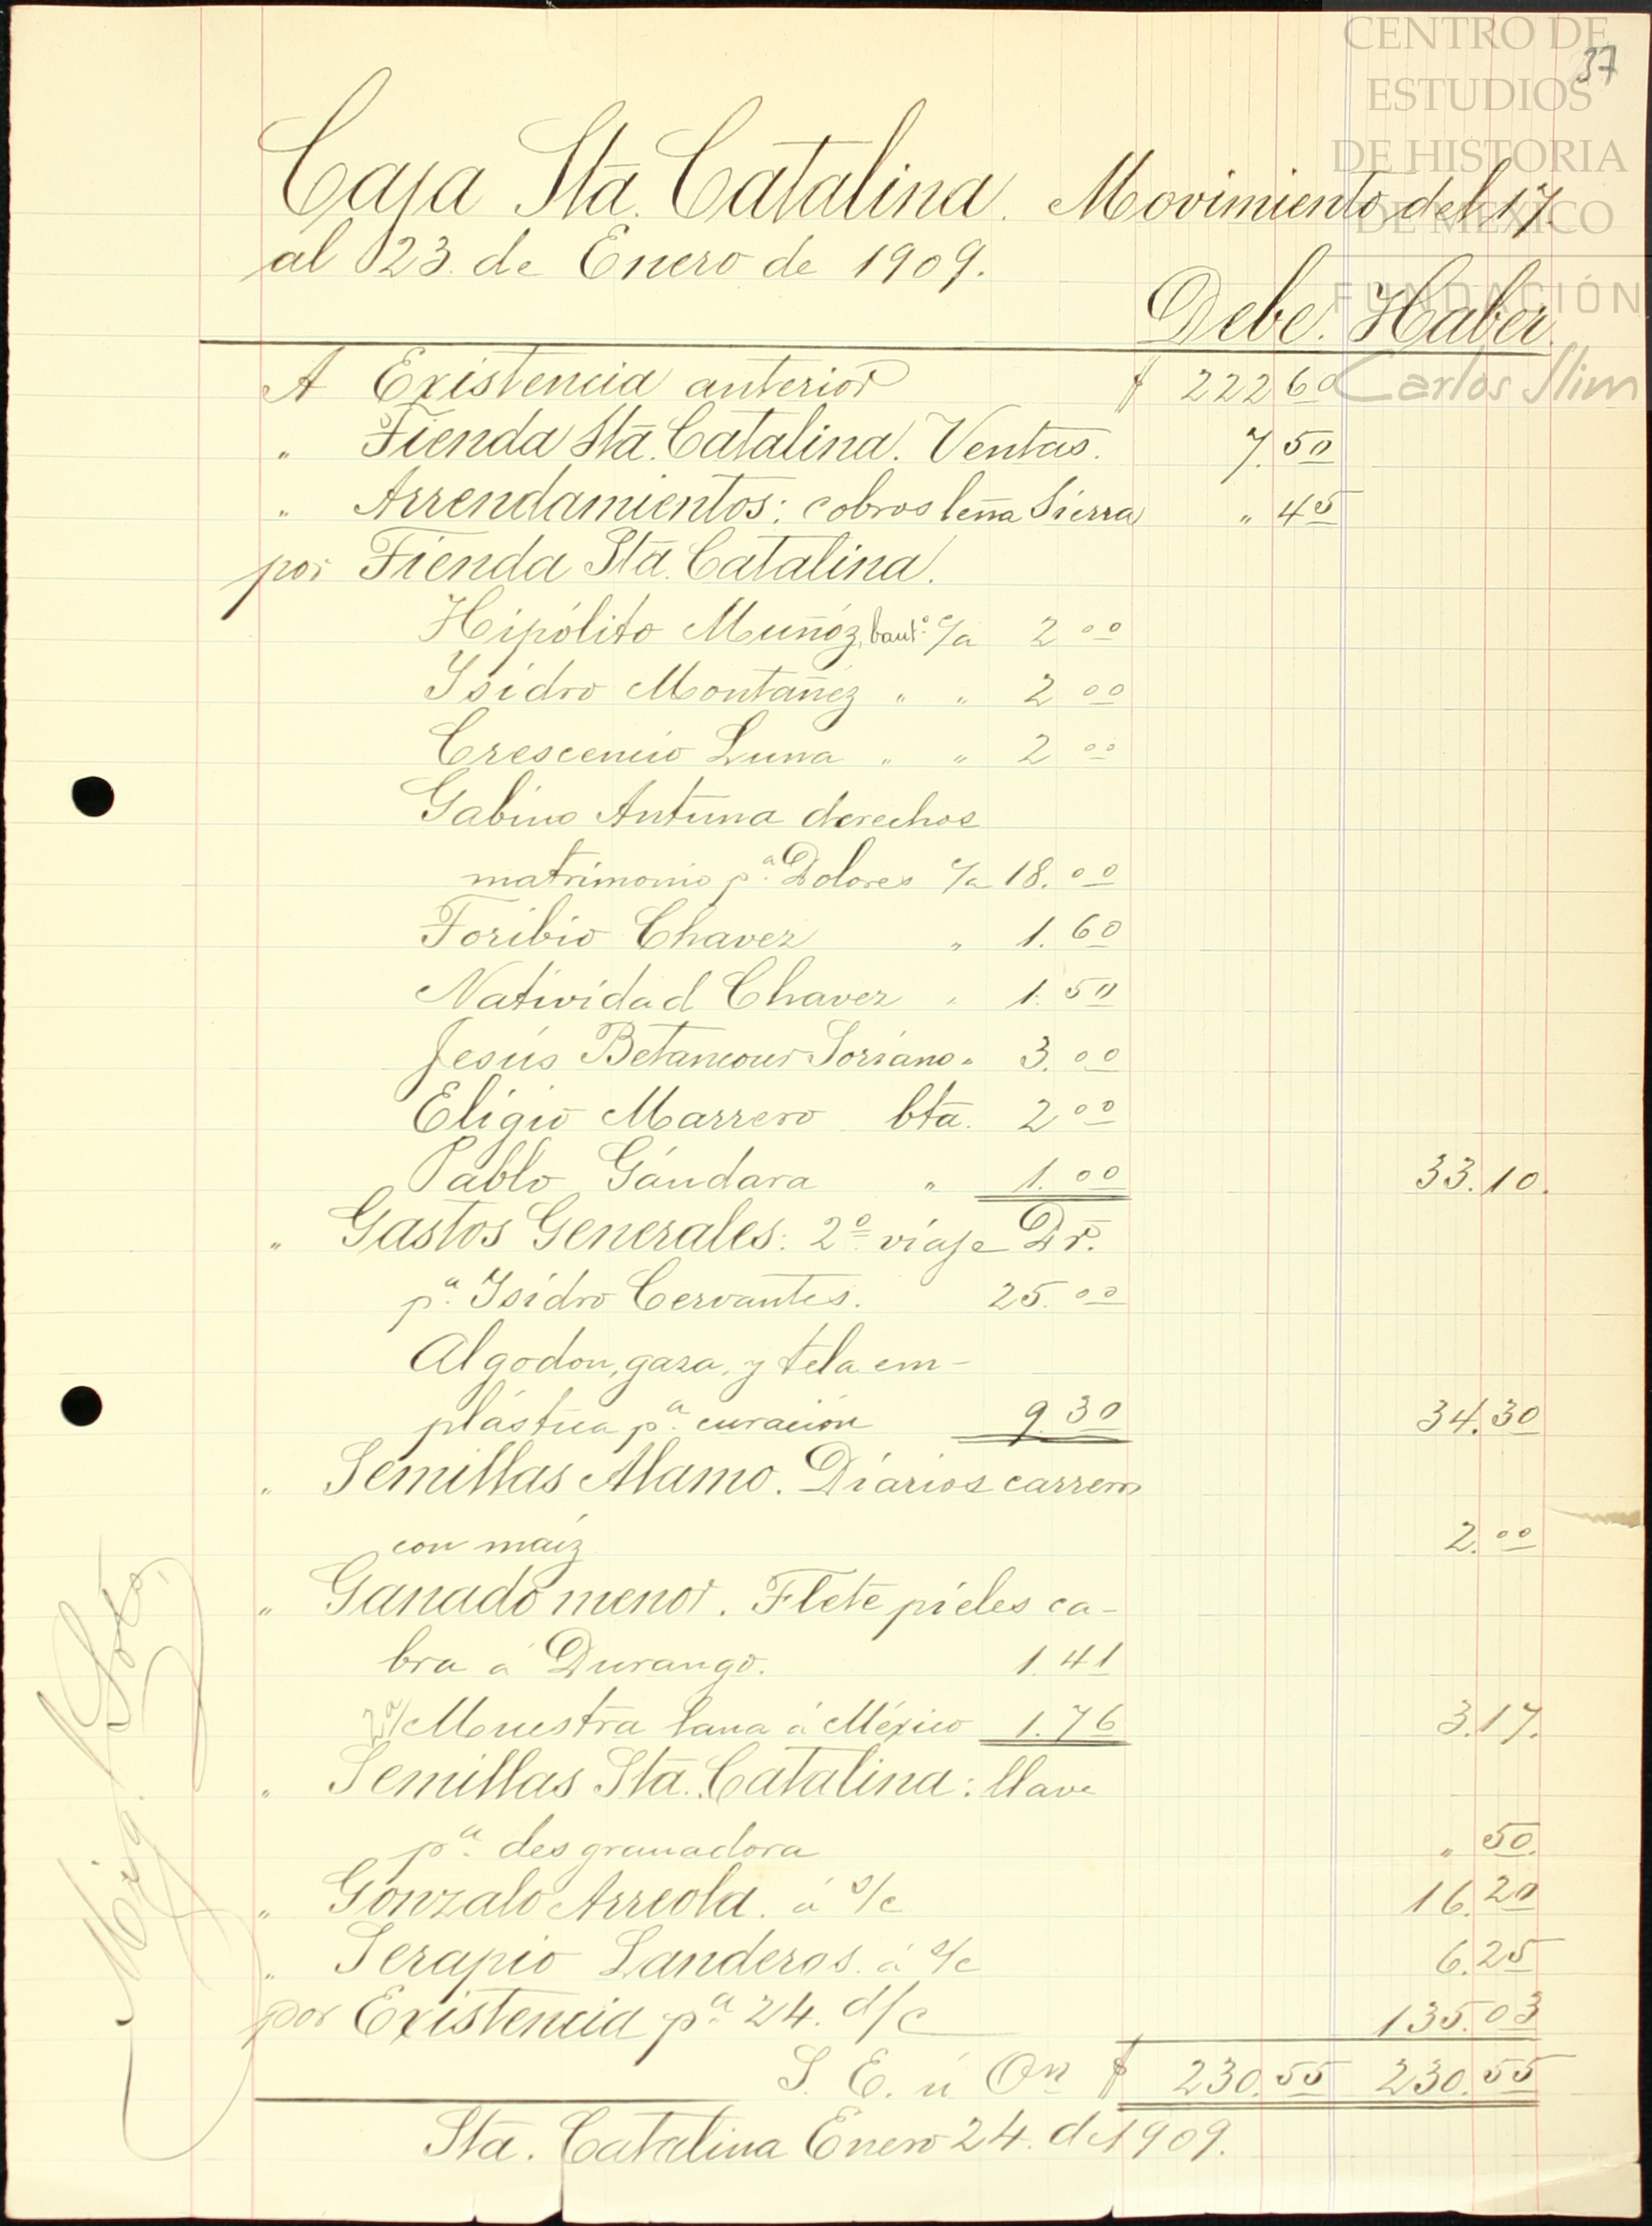 CENTRO DE
ESTUDIOS
DE HISTORIA
DE MÉXICO
FUNDACIÓN
Carlos Slim
37
Caja Sta. Catalina. Movimiento del 17.
al 23. de Enero de 1909.
Debe. Haber.
A Existencia anterior $ 222 60
" Tienda Sta. Catalina. Ventas. 7.50
" Arrendamientos: cobros leña Sierra " 45
por Tienda Sta. Catalina.
Hipólito Muñóz, baut.º c/a 2 00
Isidro Montañéz " " 2 00
Crescencio Luna " " 2 00
Gabino Antuna derechos
matrimonio p.ª Dolores c/a 18.00
Toribio Chavez " 1.60
Natividad Chavez " 1.50
Jesús Betancour Soriano " 3.00
Eligio Marrero bta. 2 00
Pablo Gándara " 1.00 33.10.
" Gastos Generales: 2º viaje Dr.
p.ª Isidro Cervantes. 25.00
Algodon, gaza, y tela em-
plástica p.ª curación 9.30 34.30
" Semillas Alamo. Diarios carreros
con maíz 2.00
" Ganado menor. Flete pieles ca-
bra á Durango. 1.41
2ª/ Muestra lana á México 1.76 3.17.
" Semillas Sta. Catalina: llave
p.ª desgranadora " 50.
" Gonzalo Arreola. á s/c 16.20
" Serapio Landeros. á s/c 6.25
por Existencia p.ª 24. d/c 135.03
S. E. ú On $ 230.55 230.55
Sta. Catalina Enero 24. de 1909.
Mig. Soto